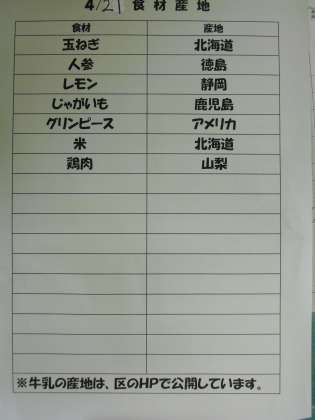 4/21 食材産地
食材 産地
玉ねぎ 北海道
人参 徳島
レモン 静岡
じゃがいも 鹿児島
グリンピース アメリカ
米 北海道
鶏肉 山梨
※牛乳の産地は、区のHPで公開しています。